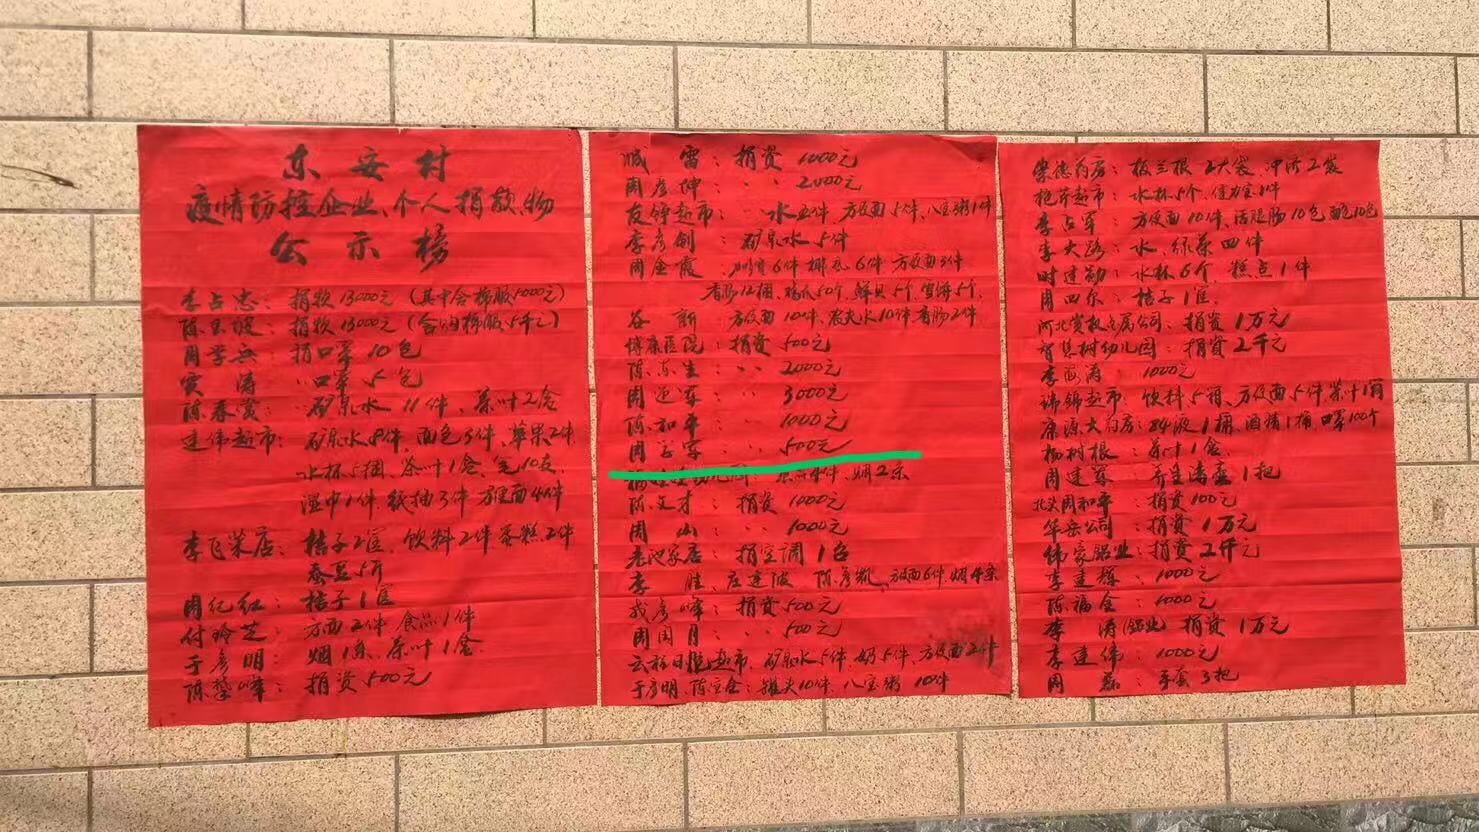 东安村
疫情防控企业、个人捐款、物
公示榜
李占忠：捐款13000元（其中含棉服5000元）
陈玉坡：捐款13000元（含购棉服5千元）
周学兵：捐口罩10包
涛 〃口罩5包
陈春 〃矿泉水11件、茶叶2盒
建伟超市：矿泉水8件 面包3件、苹果2件
水杯5捆、茶叶1盒、笔10支、
湿巾1件、纸抽3件 方便面4件
李飞 店：桔子2筐、饮料2件、蛋糕2件
5斤
周纪红：桔子1筐
付玲芝：方面2件、食品1件
于彦明：烟1条、茶叶1盒
陈 峰：捐资500元
臧雷：捐资1000元
周彦坤 〃〃2000元
超市：〃水五件 方便面5件、八宝粥1件
李彦创：矿泉水5件
周金霞： 6件 6件 方便面3件
香肠12捆、鸡爪50个、鲜贝5个、 5个、
谷新：方便面10件、农夫水10件、香肠2件
博康医院：捐资500元
陈东生：〃〃2000元
周 军：3000元
陈和平：〃〃1000元
周 〃〃500元
4件、烟2条
陈文才：捐资1000元
周山：〃〃1000元
老池家店：捐空调1台
李胜、 方便面6件、烟4条
彦峰：捐资500元
周国月：〃〃500元
超市：矿泉水5件、奶5件、方便面2件
于彦明、陈宝金：罐头10件、八宝粥10件
崇德药房：板兰根2大袋、冲济2袋
超市：水杯5个、 1件
李占军：方便面10件、活腿肠10包 10包
李大路：水、绿茶四件
时建勋：水杯6个、糕点1件
周四东：桔子1筐、
河北 金属公司：捐资1万元
智慧树幼儿园：捐资2千元
李 涛：1000元
锦超市：饮料5箱、方便面5件、茶叶1箱
康源大药房：84液1桶、酒精1桶、口罩100个
杨树根：茶叶1盒
周建 ：养生 壶1把
北头周和平：捐资100元
华岳公司：捐资1万元
伟豪铝业：捐资2仟元
李建 ：1000元
陈福全：1000元
李涛（铝业）捐资1万元
李建伟：1000元
周磊：手套3把